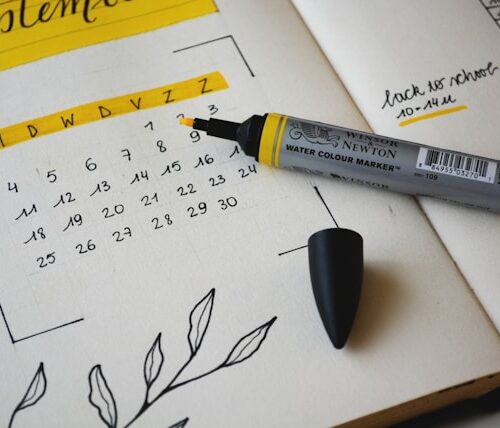 D W D V Z Z
1 2 3
4 5 6 7 8 9
11 12 13 14 15 16
18 19 20 21 22 23 24
25 26 27 28 29 30
back to school
10-14u
WINSOR
& NEWTON
WATER COLOUR MARKER™
WINSOR
109
84955 03270